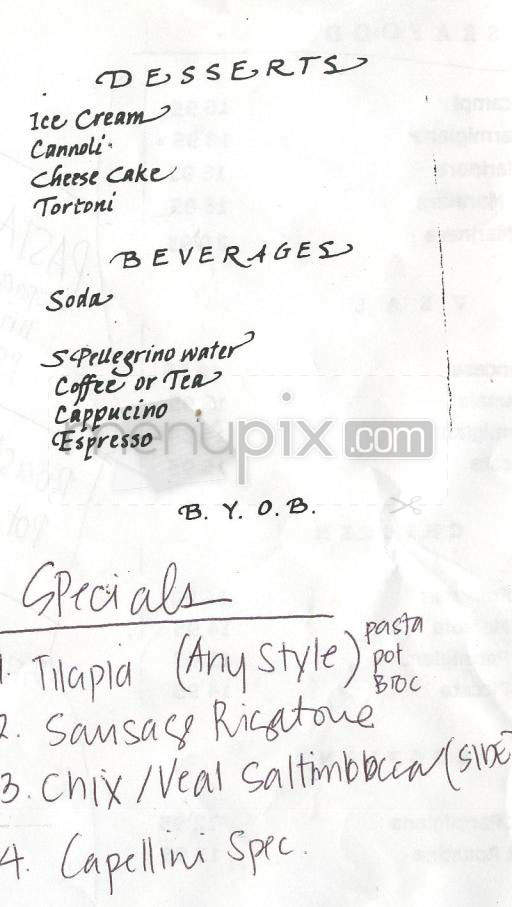 DESSERTS
Ice Cream
Cannoli
Cheese Cake
Tortoni
BEVERAGES
Soda
S Pellegrino water
Coffee or Tea
Cappucino
Espresso
menupix.com
B. Y. O. B.
Specials
1. Tilapia (Any Style) pasta
pot
Broc
2. Sausage Rigatone
3. Chix / Veal Saltimbocca (SIDE)
4. Capellini Spec.